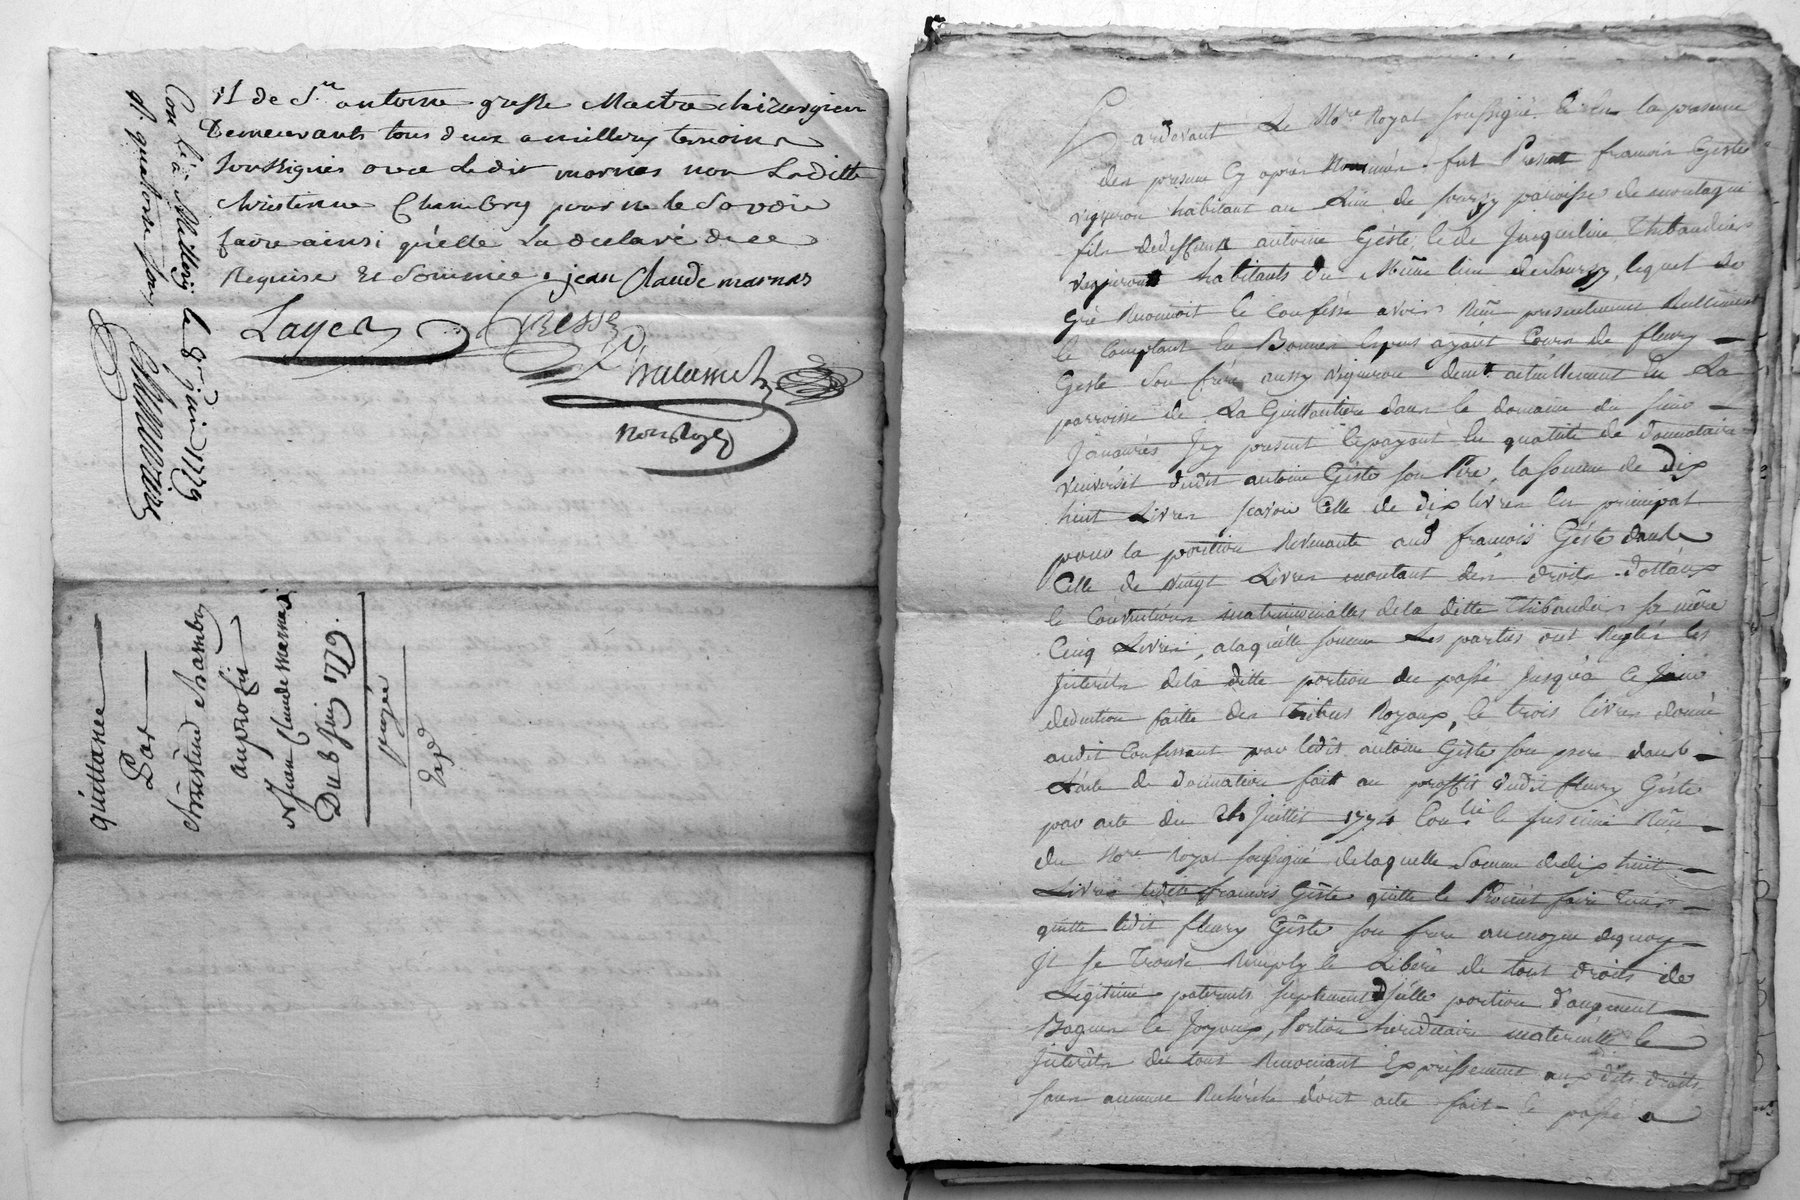 et de Sr. antoine gresse Maitre chirurgien
Demeurants tous deux a millery temoins
soussignés avec ledit marnas non Laditte
christinne Chambry pour ne le Savoir
faire ainsi qu'elle La declaré de ce
Requise Et Sommée. jean Claude marnas
Layer GRESSE
Con lé à Millery le 8 juin 1779
R. quatorze sous
quittance
Par
christine chambry
au profit
de Jean Claude Marnas
Du 8 Juin 1779.
payée
Pardevant Le Nore. Royal soussigné, & en la presence
des presens Cy après Nommés. fut Present francois Géste
vigneron habitant au Lieu de sourzy paroisse de montagnie
fils dedeffunt antoine Géste, & de Jacqueline Thibaudier
vignerons habitants du Même lieu de Sourzy, lequel de
gré Reconnoit & Confesse avoir Reçu presentement Reellement
& Comptant En Bonnes Especes ayant Cours de fleury
Géste Son frère aussy vigneron demt. actuellement En La
parroisse de La Guillautiere dans le domaine du sieur
Icy present & payant En qualité de Donnataire
universel dudit antoine Géste son Père, la somme de dix
huit Livres scavoir Celle de dix livres En principal
pour la portion Revenante aud francois Géste dans
Celle de vingt Livres montant des droits
& Conventions matrimonialles de la ditte Thibaudier sa mère
Cinq Livres, alaquelle somme Les parties ont Reglés les
Interêts dela ditte portion du passé jusqu'à Ce Jour
deduction faitte des tributs Royaux, & trois livres donné
audit Confessant par ledit antoine Géste son pere dans
L'acte de donnation fait au proffit dudit fleury Géste
par acte du 24 Juillet 1774 Conlé & Reçu
du Nore. royal soussigné delaquelle Somme dedix huit
Livres ledit francois Géste quitte & Promet faire tenir
quitte ledit fleury Géste son frere au moyen dequoy
Il se Trouve Remply & Libéré de tout droits de
Legitime paternels suplement d'jcelle portion d'augment
Bagues & Joyaux, Portion hereditaire maternelle &
Interêts du tout Renonçant Expressement auxdits droits
sans aucune Recherche dont acte fait & passé a